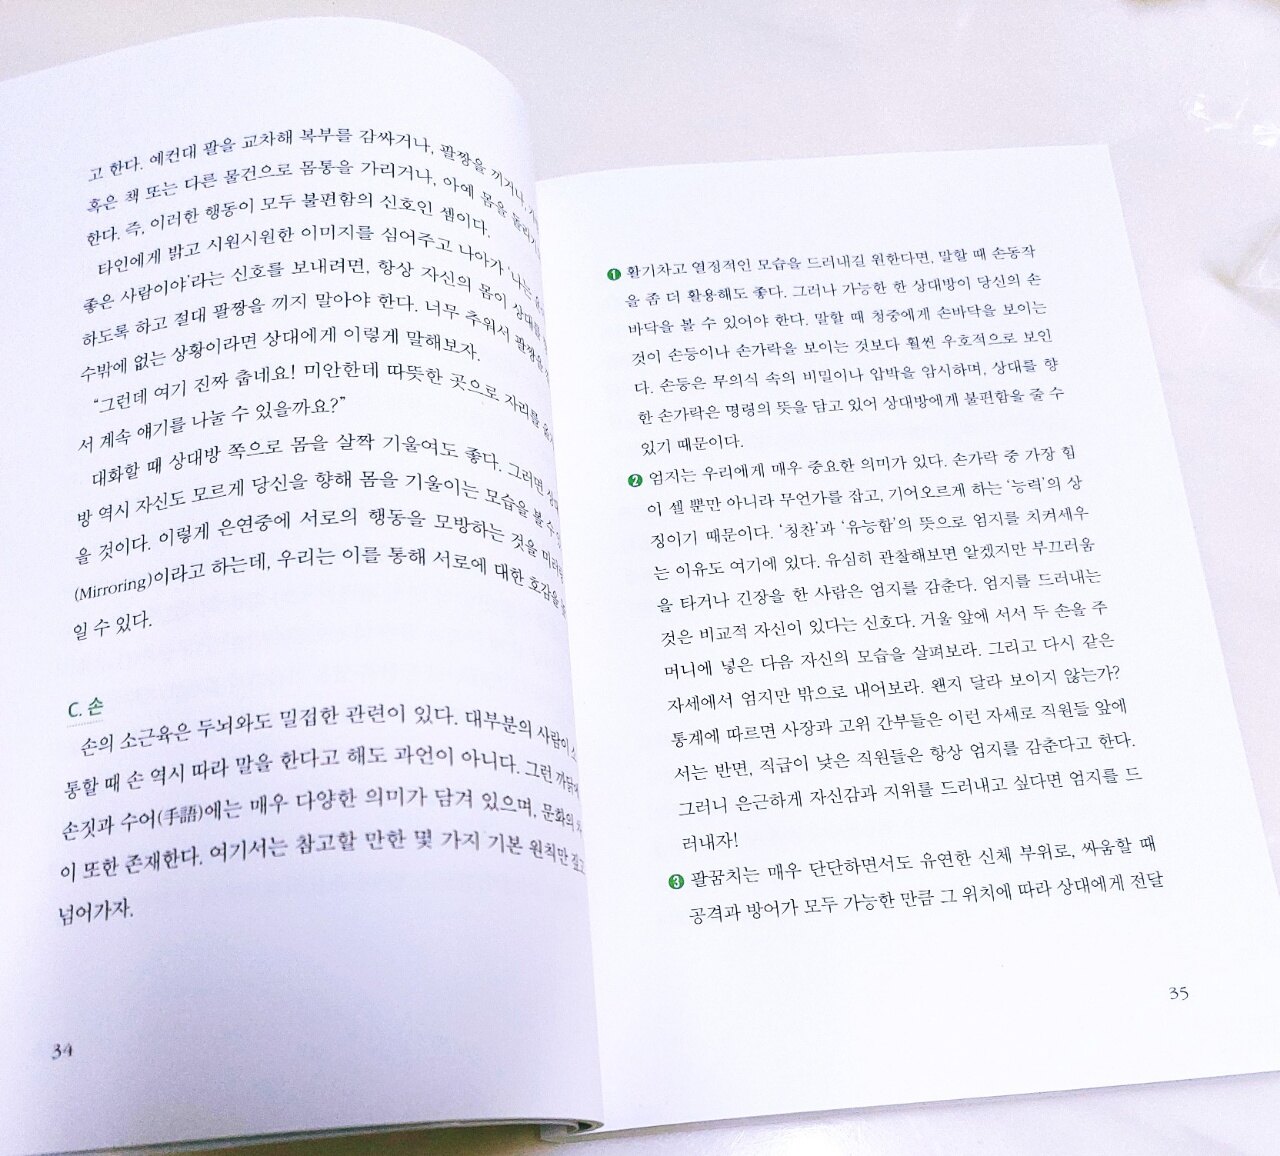 고 한다. 예컨대 팔을 교차해 복부를 감싸거나, 팔짱을 끼거나,
혹은 책 또는 다른 물건으로 몸통을 가리거나, 아예 몸을
한다. 즉, 이러한 행동이 모두 불편함의 신호인 셈이다.
타인에게 밝고 시원시원한 이미지를 심어주고 나아가 ‘나는
좋은 사람이야’라는 신호를 보내려면, 항상 자신의 몸이 상대를
하도록 하고 절대 팔짱을 끼지 말아야 한다. 너무 추워서 팔짱을
수밖에 없는 상황이라면 상대에게 이렇게 말해보자.
“그런데 여기 진짜 춥네요! 미안한데 따뜻한 곳으로 자리를
서 계속 얘기를 나눌 수 있을까요?”
대화할 때 상대방 쪽으로 몸을 살짝 기울여도 좋다. 그러면
방 역시 자신도 모르게 당신을 향해 몸을 기울이는 모습을 볼 수
을 것이다. 이렇게 은연중에 서로의 행동을 모방하는 것을
(Mirroring)이라고 하는데, 우리는 이를 통해 서로에 대한 호감을
일 수 있다.
C. 손
손의 소근육은 두뇌와도 밀접한 관련이 있다. 대부분의 사람이
통할 때 손 역시 따라 말을 한다고 해도 과언이 아니다. 그런 까닭에
손짓과 수어(手語)에는 매우 다양한 의미가 담겨 있으며, 문화의
이 또한 존재한다. 여기서는 참고할 만한 몇 가지 기본 원칙만 짚고
넘어가자.
34
❶ 활기차고 열정적인 모습을 드러내길 원한다면, 말할 때 손동작
을 좀 더 활용해도 좋다. 그러나 가능한 한 상대방이 당신의 손
바닥을 볼 수 있어야 한다. 말할 때 청중에게 손바닥을 보이는
것이 손등이나 손가락을 보이는 것보다 훨씬 우호적으로 보인
다. 손등은 무의식 속의 비밀이나 압박을 암시하며, 상대를 향
한 손가락은 명령의 뜻을 담고 있어 상대방에게 불편함을 줄 수
있기 때문이다.
❷ 엄지는 우리에게 매우 중요한 의미가 있다. 손가락 중 가장 힘
이 셀 뿐만 아니라 무언가를 잡고, 기어오르게 하는 ‘능력’의 상
징이기 때문이다. ‘칭찬’과 ‘유능함’의 뜻으로 엄지를 치켜세우
는 이유도 여기에 있다. 유심히 관찰해보면 알겠지만 부끄러움
을 타거나 긴장을 한 사람은 엄지를 감춘다. 엄지를 드러내는
것은 비교적 자신이 있다는 신호다. 거울 앞에 서서 두 손을 주
머니에 넣은 다음 자신의 모습을 살펴보라. 그리고 다시 같은
자세에서 엄지만 밖으로 내어보라. 왠지 달라 보이지 않는가?
통계에 따르면 사장과 고위 간부들은 이런 자세로 직원들 앞에
서는 반면, 직급이 낮은 직원들은 항상 엄지를 감춘다고 한다.
그러니 은근하게 자신감과 지위를 드러내고 싶다면 엄지를 드
러내자!
❸ 팔꿈치는 매우 단단하면서도 유연한 신체 부위로, 싸움할 때
공격과 방어가 모두 가능한 만큼 그 위치에 따라 상대에게 전달
35